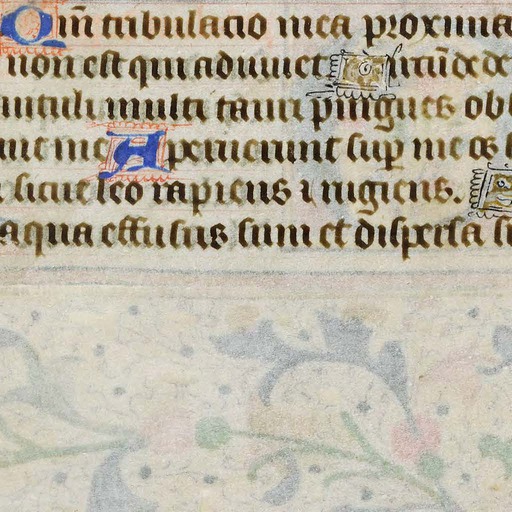 Qm̄ tribulacio mea proxima
non est qui adiuuet Circūdede
uituli multi tauri pingues ob
me Aperuerunt sup me os
sicut leo rapiens i rugiens.
aqua effusus sum et dispersa